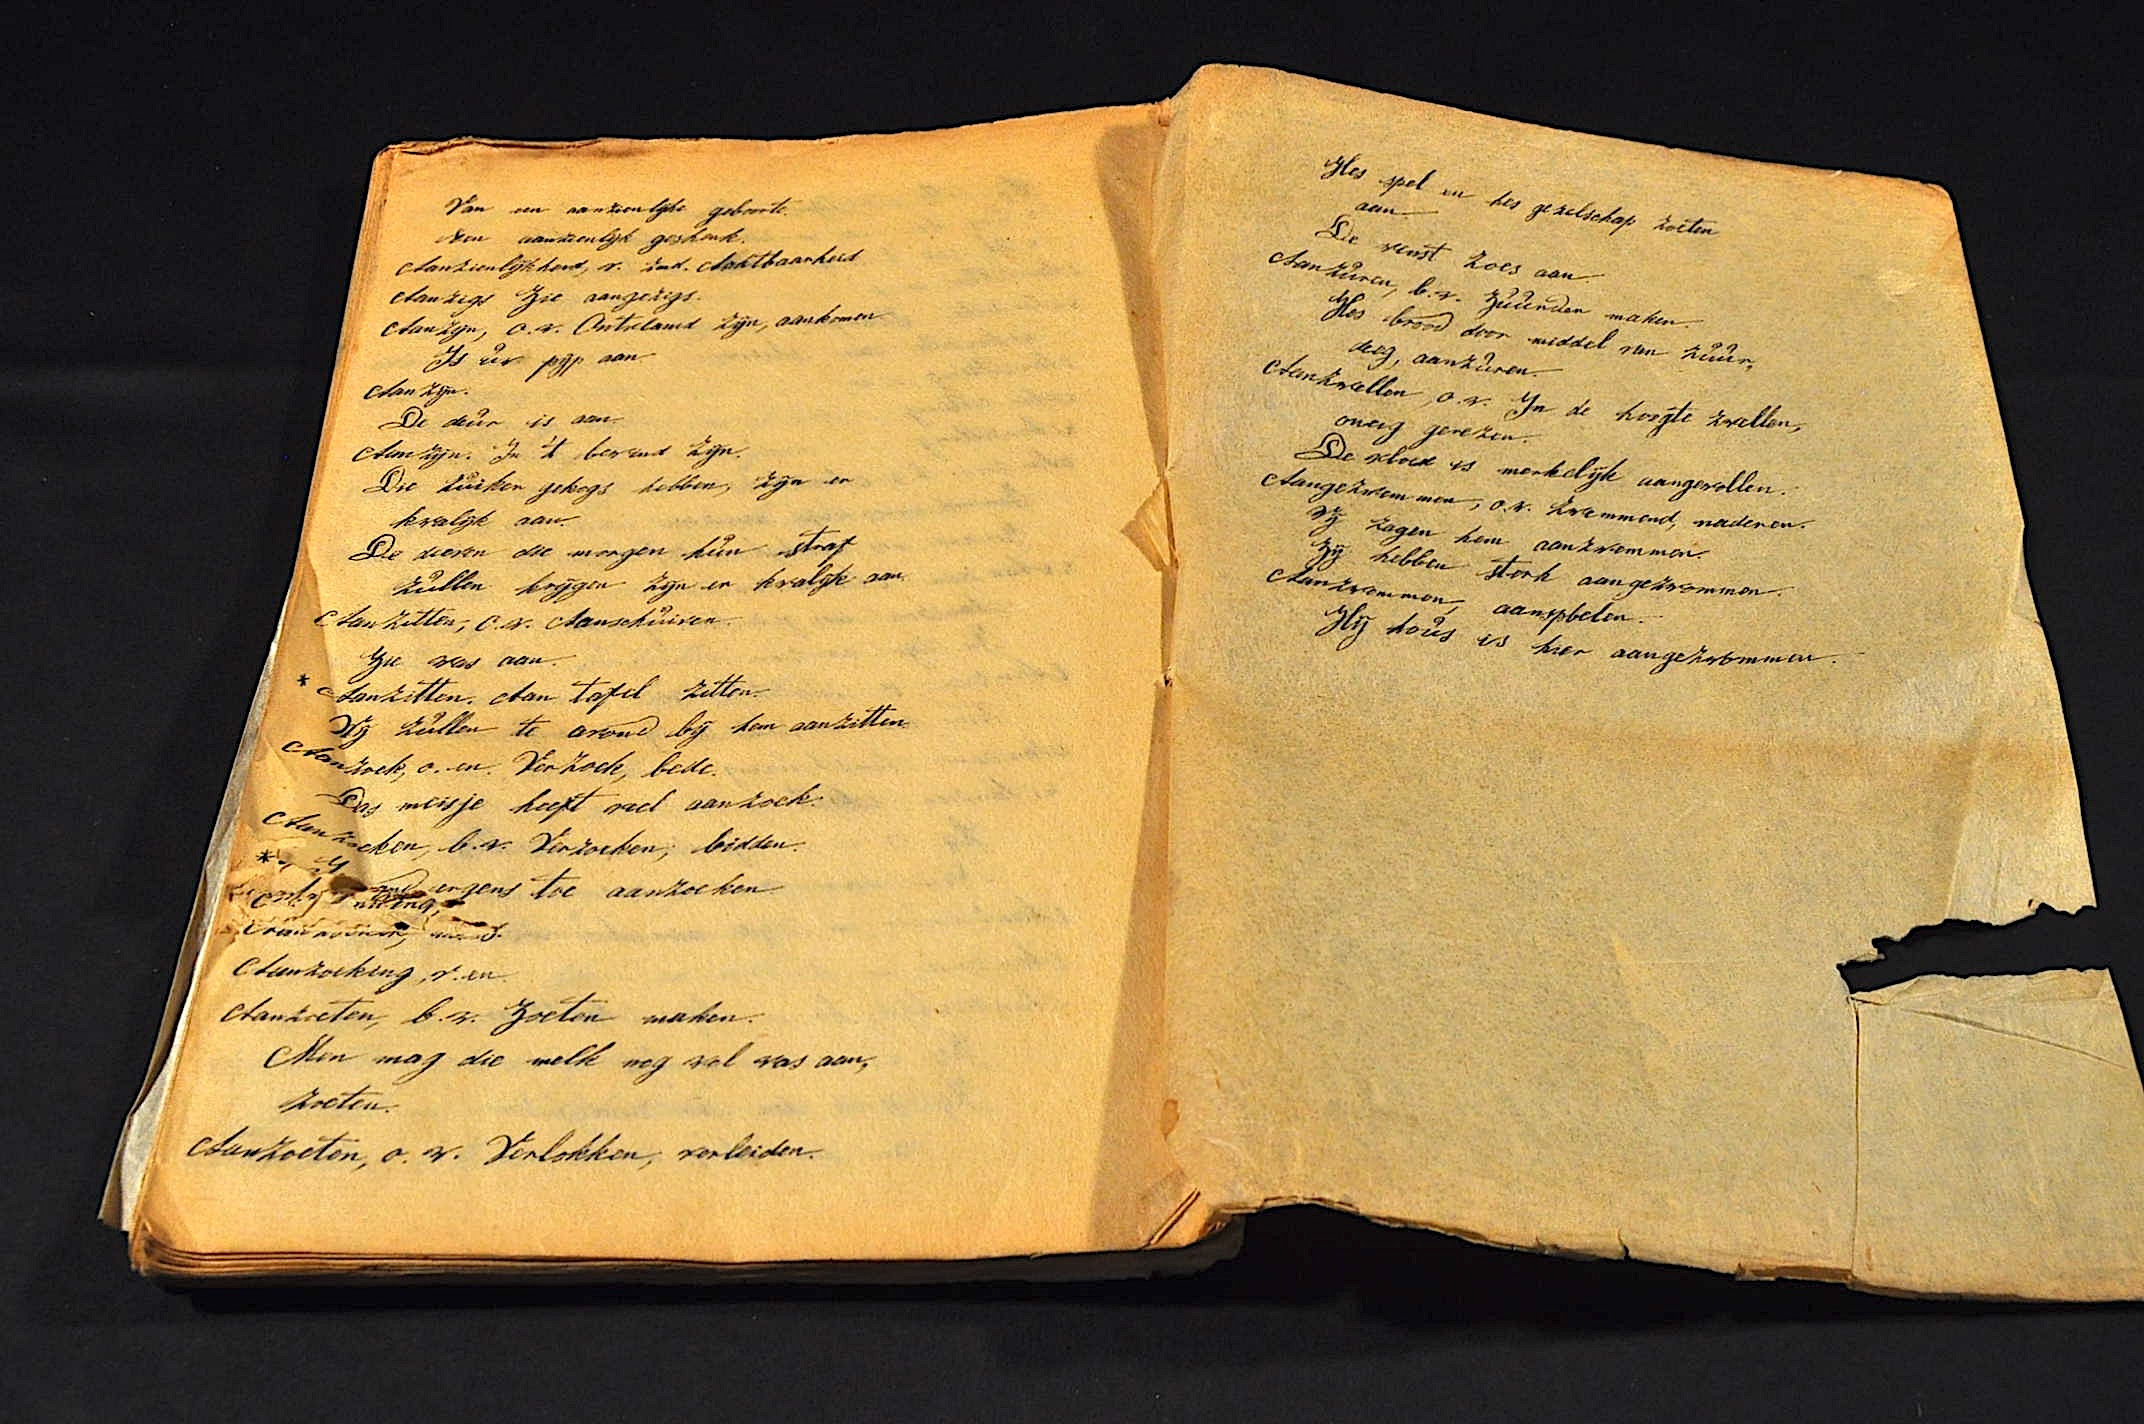 Van een aanzienlyke geboorte.
Een aanzienlyk geshenk.
Aanzienlykheid, v. znd. Achtbaarheid
Aanzigs Zie aangezigs.
Aanzyn, o.v. Ontvlamd zyn, aankomen
Is ůw pyp aan.
Aanzyn.
De deůr is aan.
Aanzyn. In 't bewind zyn.
Die zůiker gekogs hebben, zyn er
kwalyk aan.
De dieven die morgen hůn straf
zůllen krygen zyn er kwalyk aan.
Aanzitten, o.v. Aanschůiven.
Zie was aan.
* Aanzitten. Aan tafel zitten.
Wy zůllen te avond by hem aanzitten.
Aanzoek, o. en. Verzoek, bede.
Das meisje heeft veel aanzoek.
Aanzoeken, b.v. Verzoeken, bidden.
* ergens toe aanzoeken
Aanzoeking, v. en.
Aanzoeten, b.v. Zoeten maken.
Men mag die melk nog wel was aan,
zoeten.
Aanzoeten, o.v. Verlokken, verleiden.
Hes spel en hes gezelschap zoeten
aan.
De winst zoes aan.
Aanzůren, b.v. Zůůrder maken.
Hes brood door middel van zůůr,
deeg, aanzůren.
Aanzwellen, o.v. In de hoogte zwellen,
gerezen.
De vloed is merkelyk aangezwollen.
Aangezwemmen, o.v. Zwemmend, naderen.
Wy zagen hem aanzwemmen.
Zy hebben sterk aangezwommen.
Aanzwemmen, aanspoelen.
Hy hoůs is hier aangezwommen.